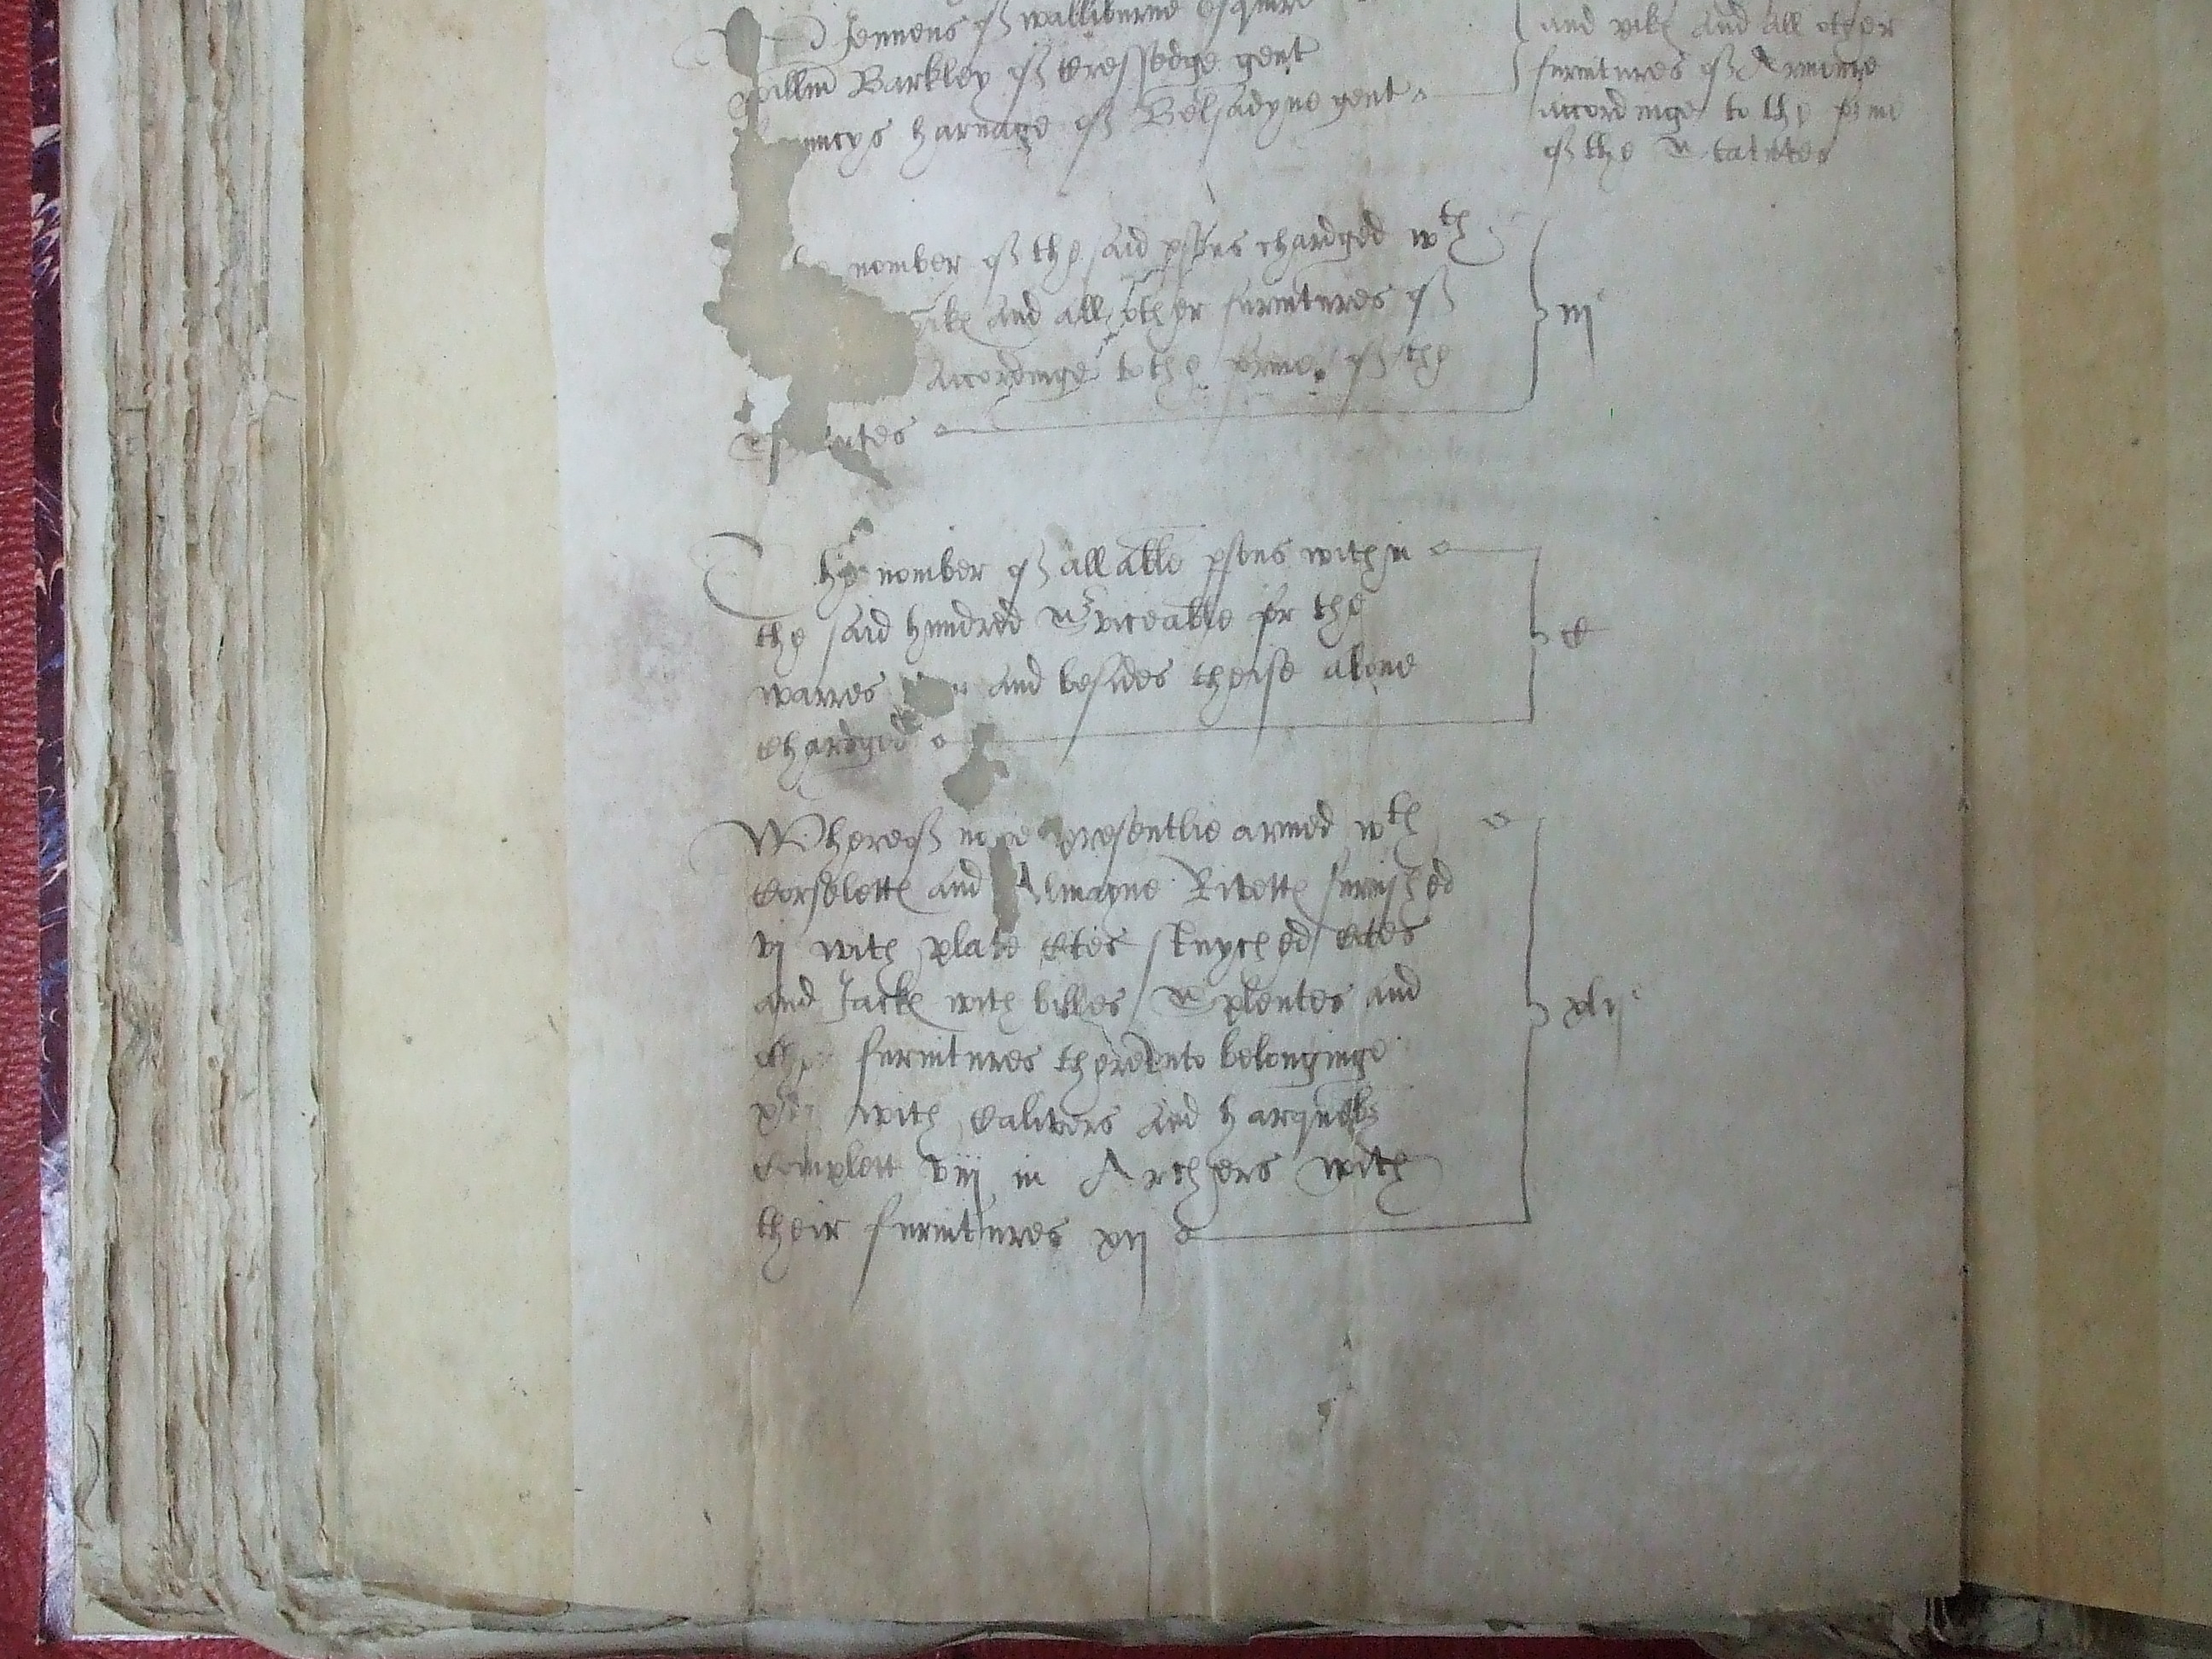 Jennens of walliburne esquire
willm Barkley of Cressedge gent
harnage of Belsadyne gent
and pike and all other
furnitures of Armure
accordinge to the forme
of the Statutes
nomber of the said psons chardged wth
pike and all other furnitures of
Accordinge to the forme of the
iij
The nomber of all able psons within
the said hundred Sviceable for the
warres and besides theise alone
Chardged
C
Whereof presentlie armed wth
Corselette and Almayne Rivette furnished
vj with plate Cotes stuyched Cotes
and Jacke with billes Splentes and
furnitures thereunto belonginge
with Calivers and harquebz
Complett viij in Archers with
their furnitures xij
xlij